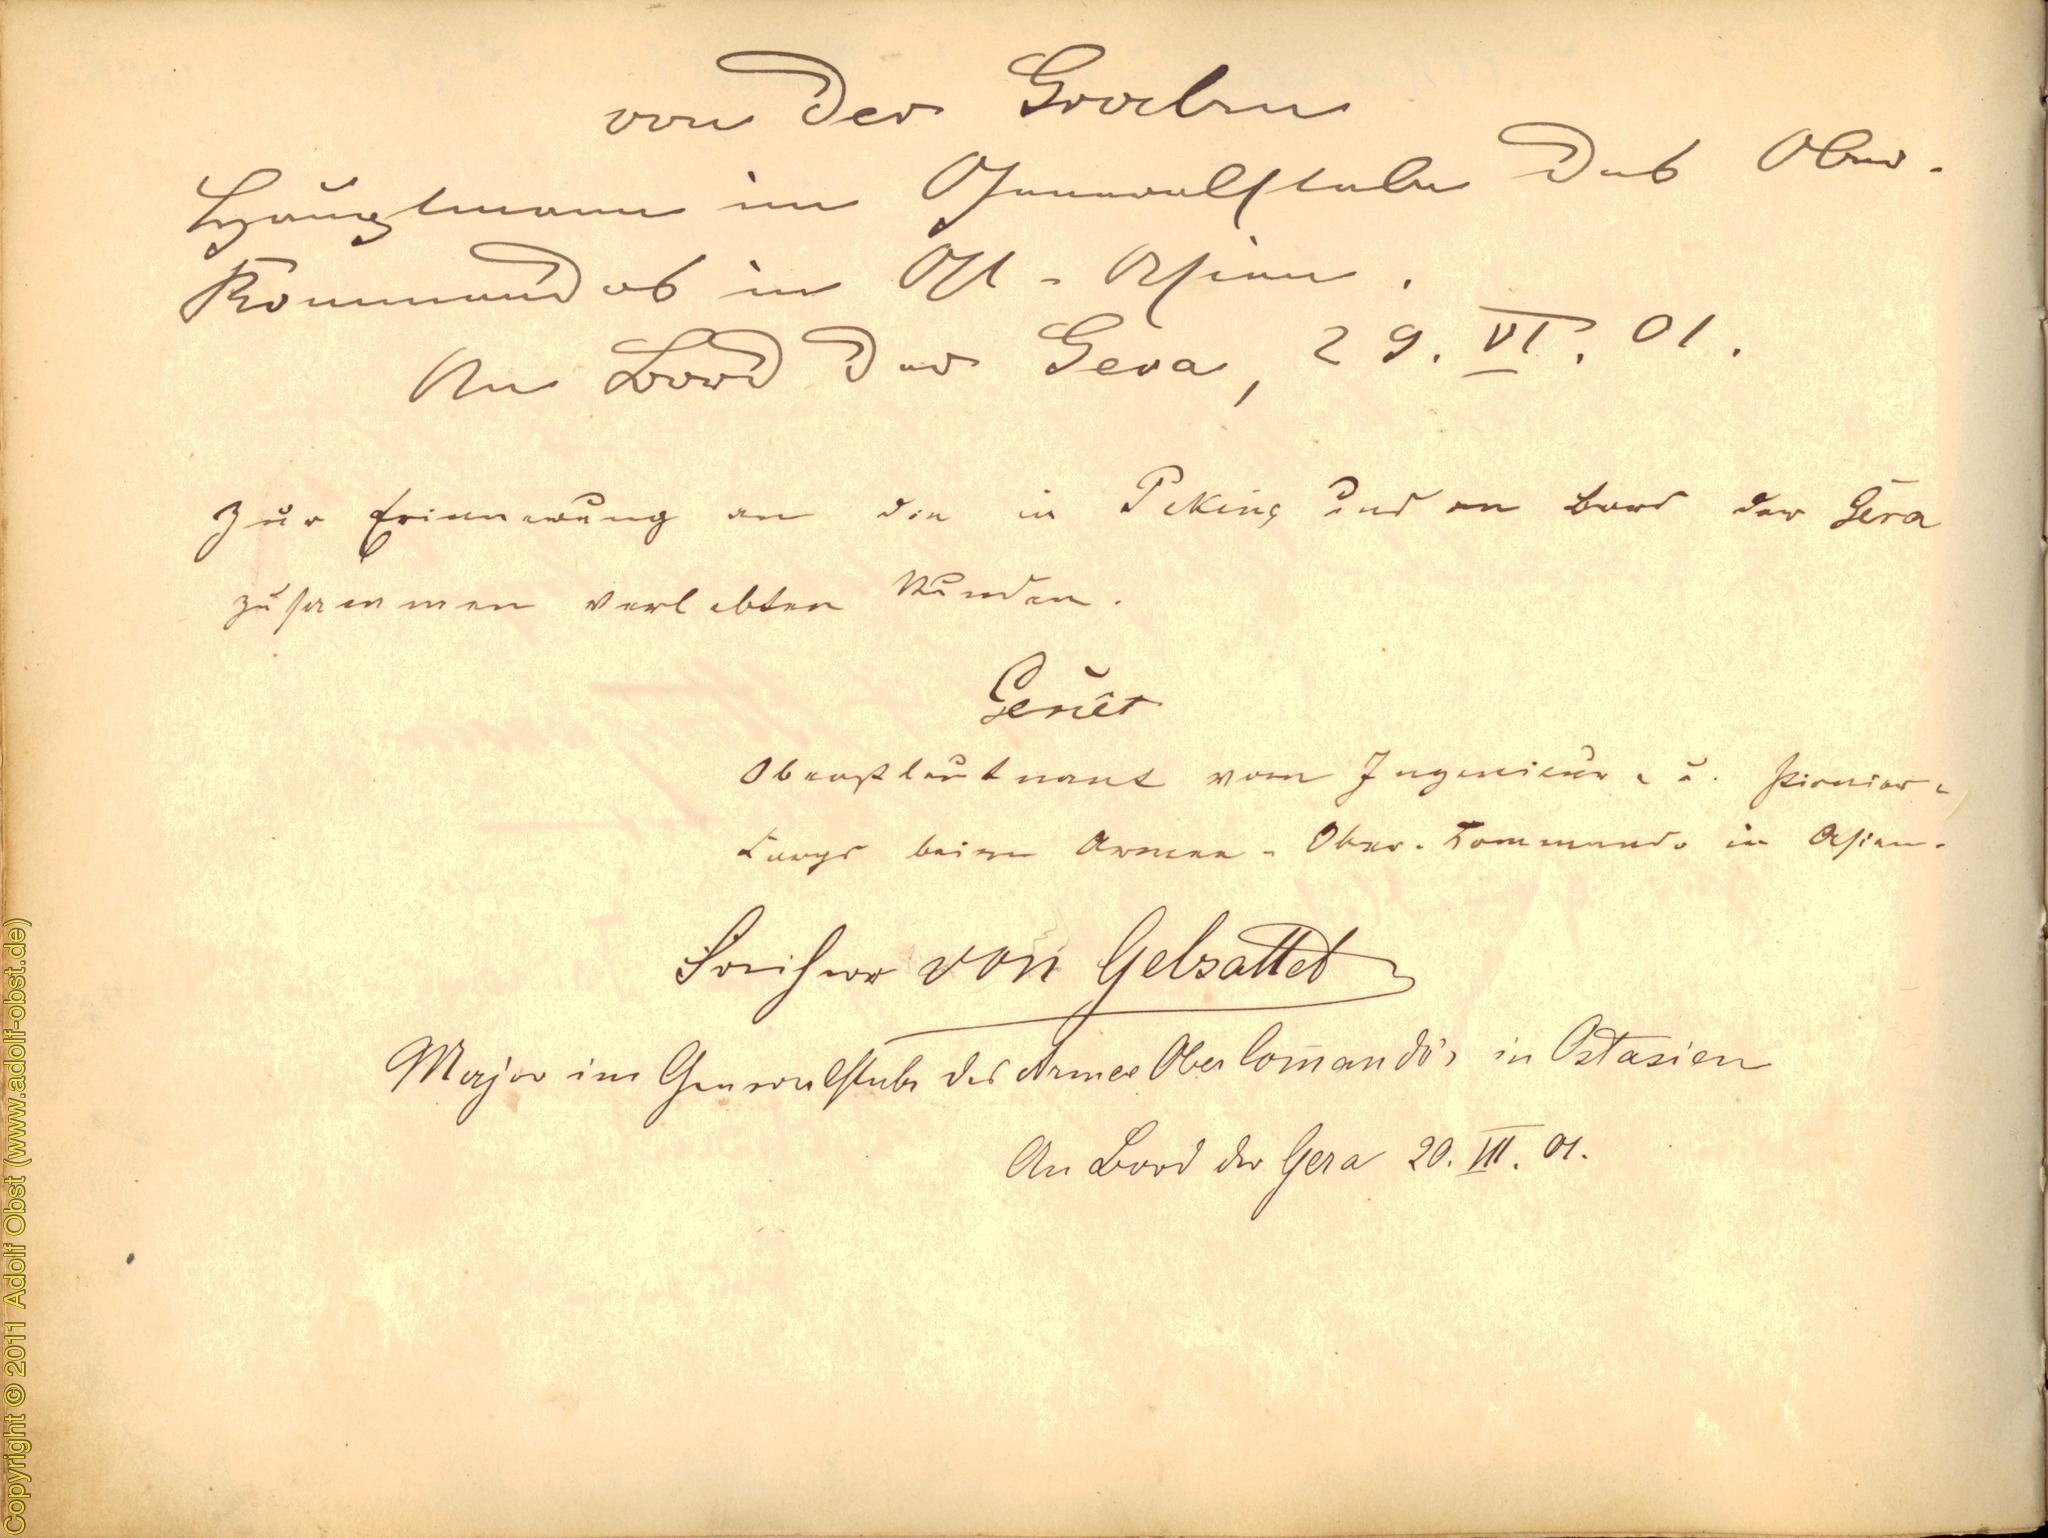 von der Groeben
Hauptmann im Generalstabe des Ober-
Kommandos in Ost-Asien.
An Bord der Gera, 29. VI. 01.
Zur Erinnerung an die in Peking und an Bord der Gera
zusammen verlebten Stunden.
Oberstleutnant vom Ingenieur- u. Pionier-
Corps beim Armee-Ober-Kommando in Asien.
Freiherr von Gebsattel
Major im Generalstabe des Armee Ober Com̄ando's in Ostasien
An Bord der Gera 20. VII. 01.
Copyright © 2011 Adolf Obst (www.adolf-obst.de)